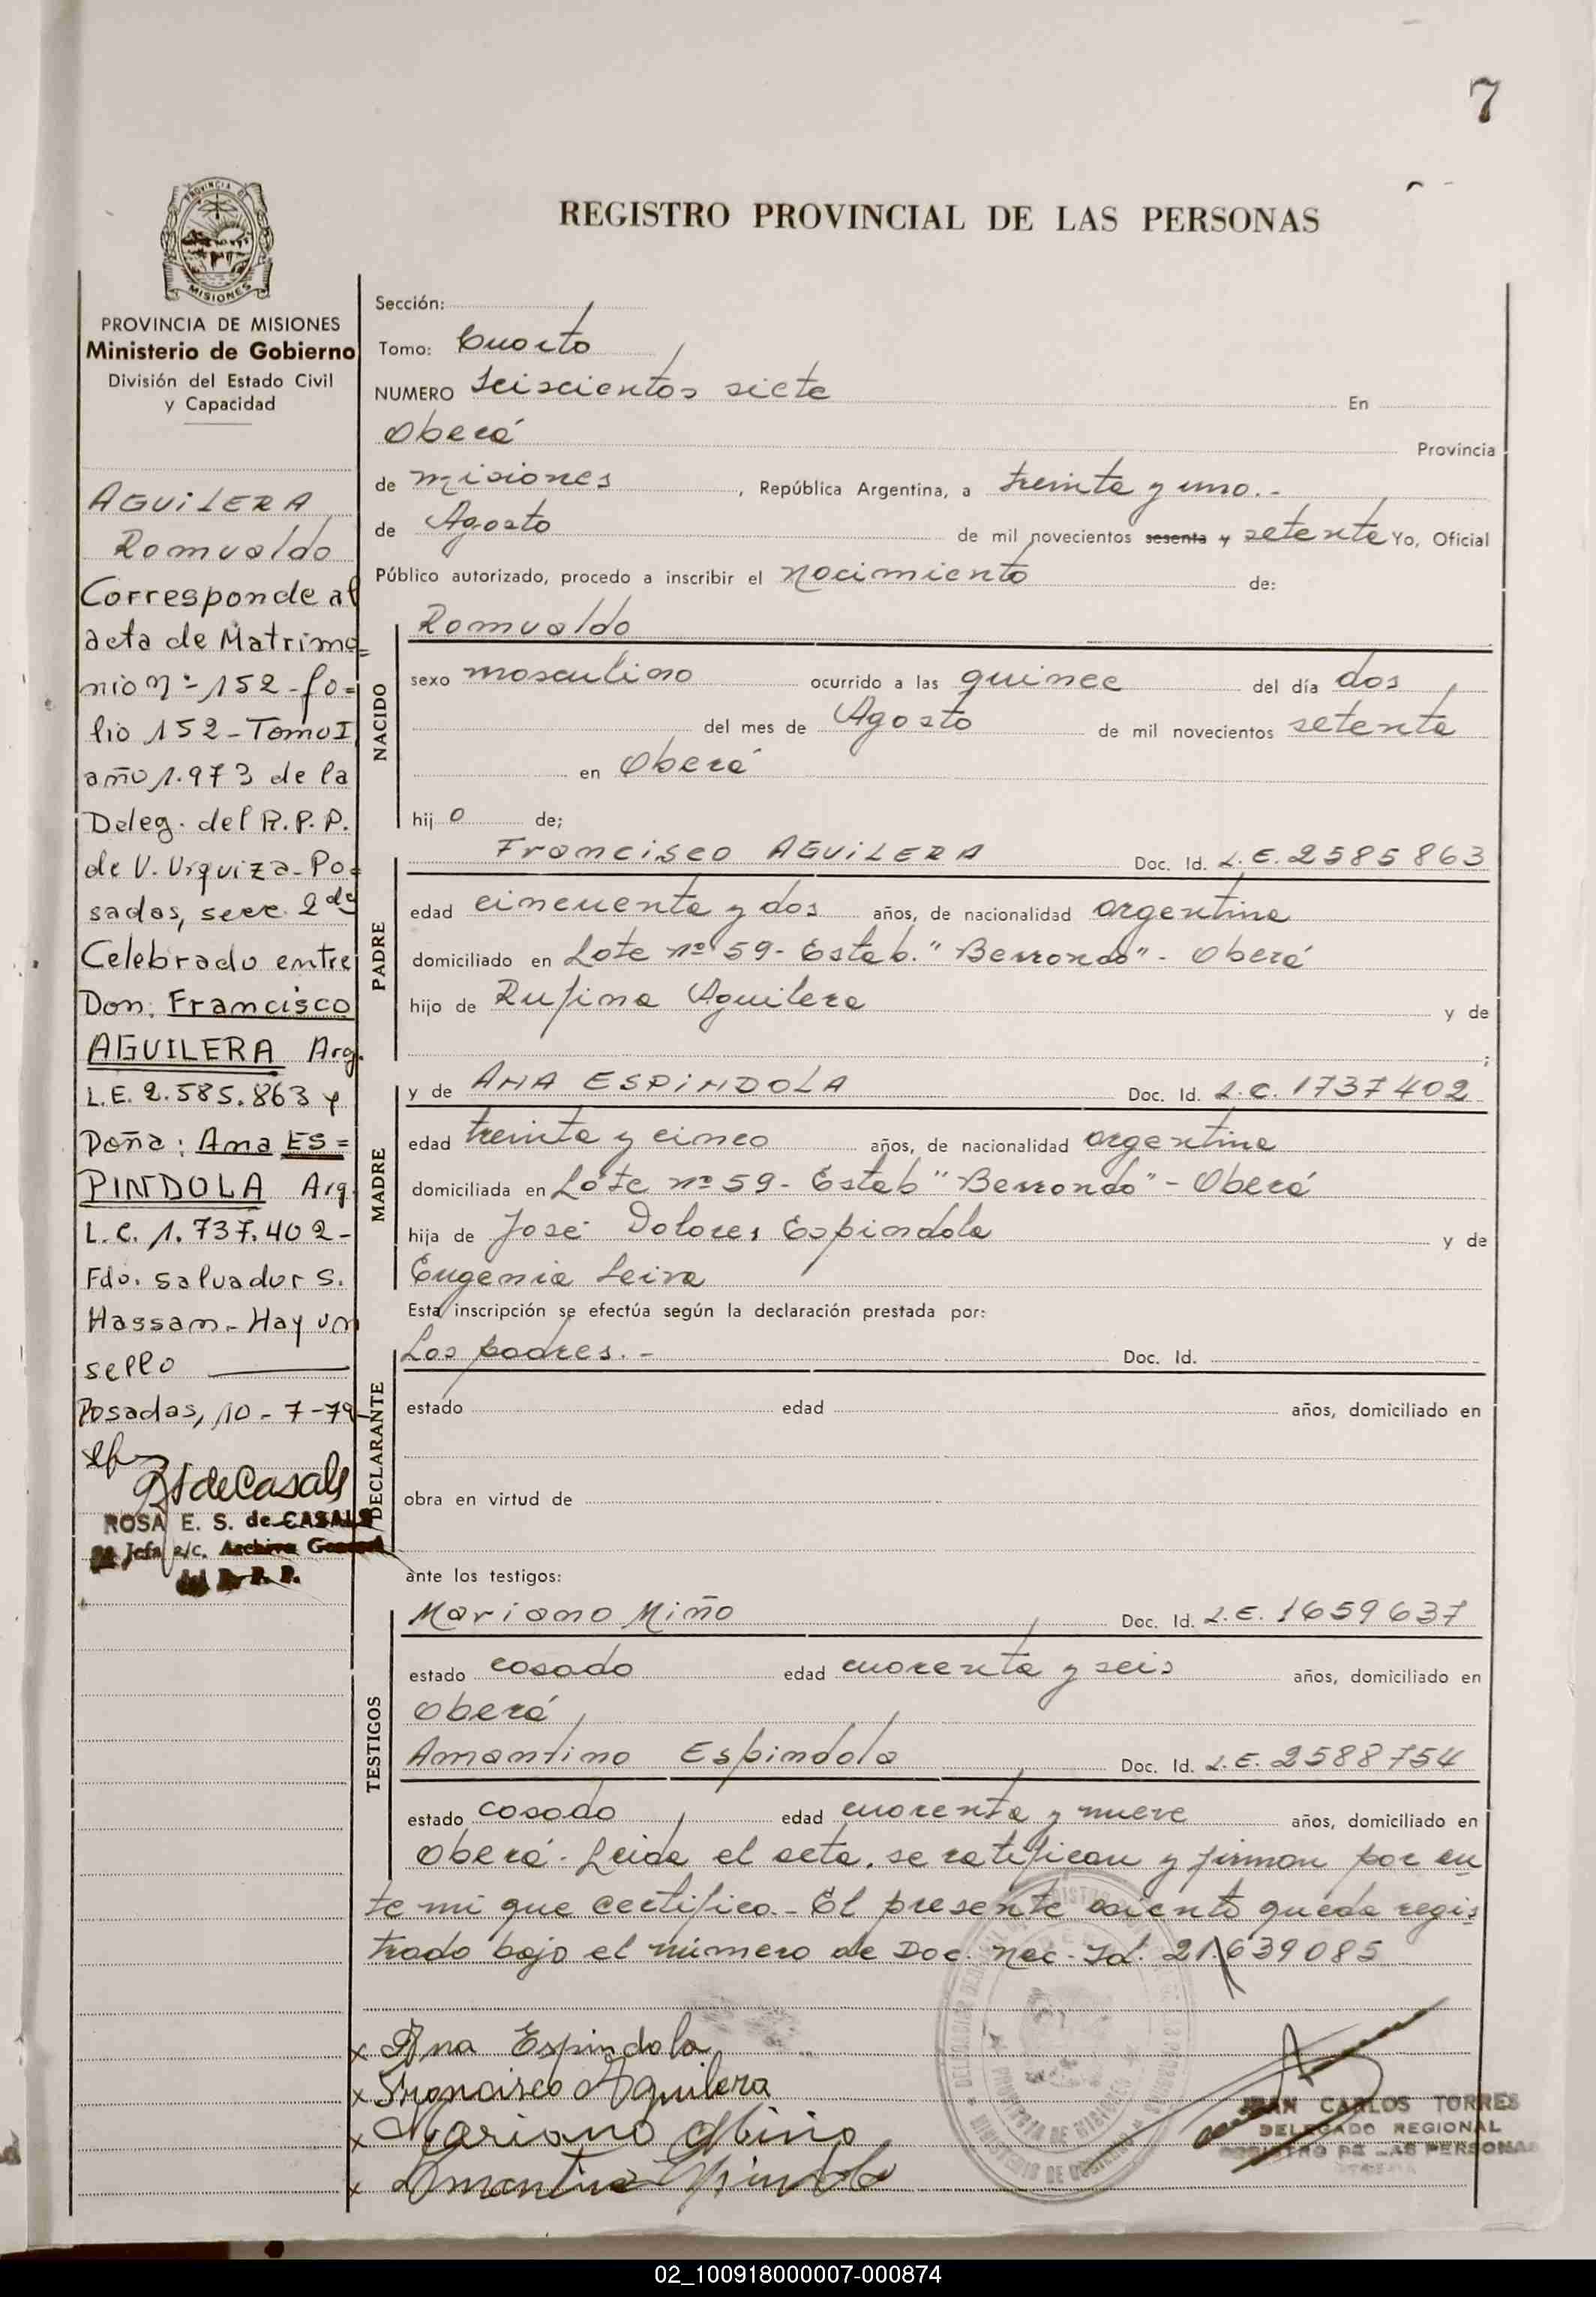 7
REGISTRO PROVINCIAL DE LAS PERSONAS
PROVINCIA DE
MISIONES
PROVINCIA DE MISIONES
Ministerio de Gobierno
División del Estado Civil
y Capacidad
AGUILERA
Romualdo
Corresponde al
acta de Matrimo=
nio nº 152 - fo=
lio 152 - Tomo I
año 1.973 de la
Deleg. del R.P.P.
de V. Urquiza - Po=
sadas, secc. 2da
Celebrado entre
Don: Francisco
AGUILERA Arg.
L.E. 2.585.863 y
Doña: Ana ES=
PINDOLA Arg.
L.C. 1.737.402 -
Fdo. Salvador S.
Hassam - Hay un
sello
Posadas, 10 - 7 - 79
RSdeCasals
ROSA E. S. de CASALS
Jefa a/c. Archivo General
del R. P. P.
Sección:
Tomo: Cuarto
NUMERO Seiscientos siete En
Oberá Provincia
de misiones, República Argentina, a treinta y uno.-
de Agosto de mil novecientos sesenta y setenta Yo, Oficial
Público autorizado, procedo a inscribir el nacimiento de:
NACIDO
Romualdo
sexo masculino ocurrido a las quince del día dos
del mes de Agosto de mil novecientos setenta
en Oberá
hij o de;
PADRE
Francisco AGUILERA Doc. Id. L.E. 2585863
edad cincuenta y dos años, de nacionalidad argentina
domiciliado en Lote nº 59 - Estab. "Berrondo" - Oberá
hijo de Rufina Aguilera y de
;
MADRE
y de ANA ESPINDOLA Doc. Id. L.C. 1737402
edad treinta y cinco años, de nacionalidad argentina
domiciliada en Lote nº 59 - Estab "Berrondo" - Oberá
hija de José Dolores Espindola y de
Eugenia Leiva
Esta inscripción se efectúa según la declaración prestada por:
DECLARANTE
Los padres.- Doc. Id.
estado edad años, domiciliado en
obra en virtud de
ante los testigos:
TESTIGOS
Mariano Miño Doc. Id. L.E. 1659637
estado casado edad cuarenta y seis años, domiciliado en
Oberá
Amantino Espindola Doc. Id. L.E. 2588754
estado casado edad cuarenta y nueve años, domiciliado en
Oberá. Leida el acta, se ratifican y firman por an
te mi que certifico.- El presente asiento queda regis
trado bajo el número de Doc. Nac. Id. 21.639085
x Ana Espindola
x Francisco Aguilera
x Mariano Miño
x Amantino Espindola
PROVINCIA DE MISIONES
MINISTERIO DE GOBIERNO
JUAN CARLOS TORRES
DELEGADO REGIONAL
REGISTRO DE LAS PERSONAS
02_100918000007-000874